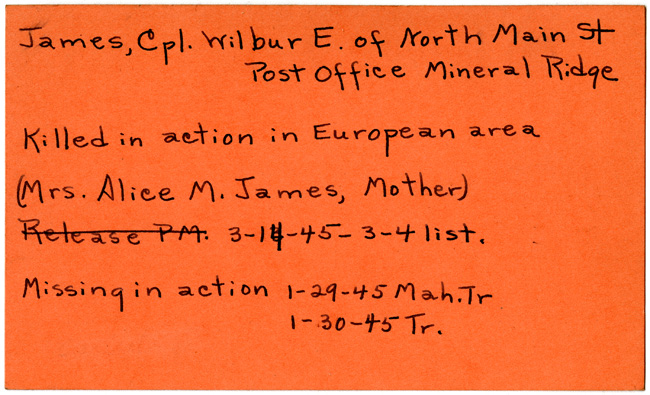 James, Cpl. Wilbur E. of North Main St
Post Office Mineral Ridge
Killed in action in European area
(Mrs. Alice M. James, Mother)
Release P.M. 3-14-45- 3-4 list.
Missing in action 1-29-45 Mah. Tr
1-30-45 Tr.